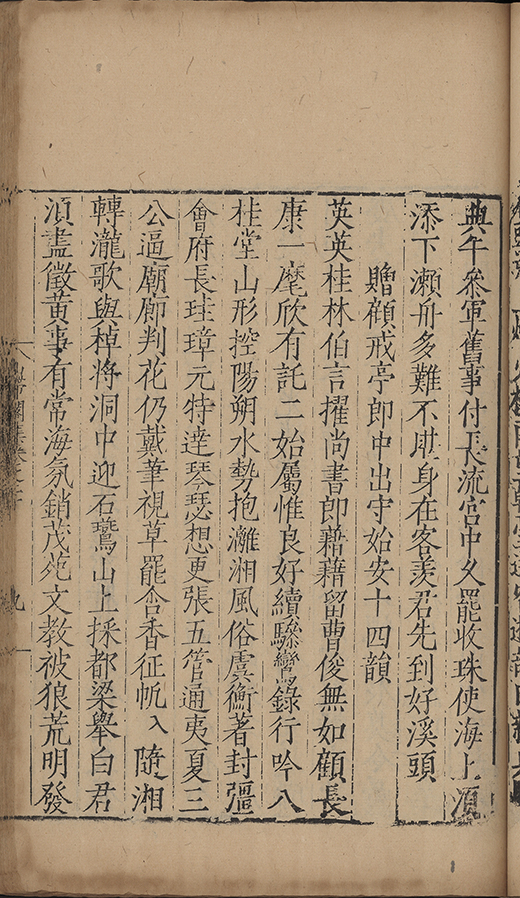 典午參軍舊事付長流宮中久罷收珠使海上須
添下瀨舟多難不堪身在客羨君先到好溪頭
贈顧戒亭郎中出守始安十四韻
英英桂林伯言擢尚書郎藉藉留曹俊無如顧長
康一麾欣有託二始屬惟良好續驂鸞錄行吟八
桂堂山形控陽朔水勢抱灕湘風俗虞衡著封疆
會府長珪璋元特達琴瑟想更張五管通夷夏三
公逼廟廊判花仍戴筆視草罷含香征帆入隨湘
轉瀧歌與棹將洞中迎石鷰山上採都梁舉白君
須盡徵黃事有常海氛銷茂苑文教被狼荒明發
九